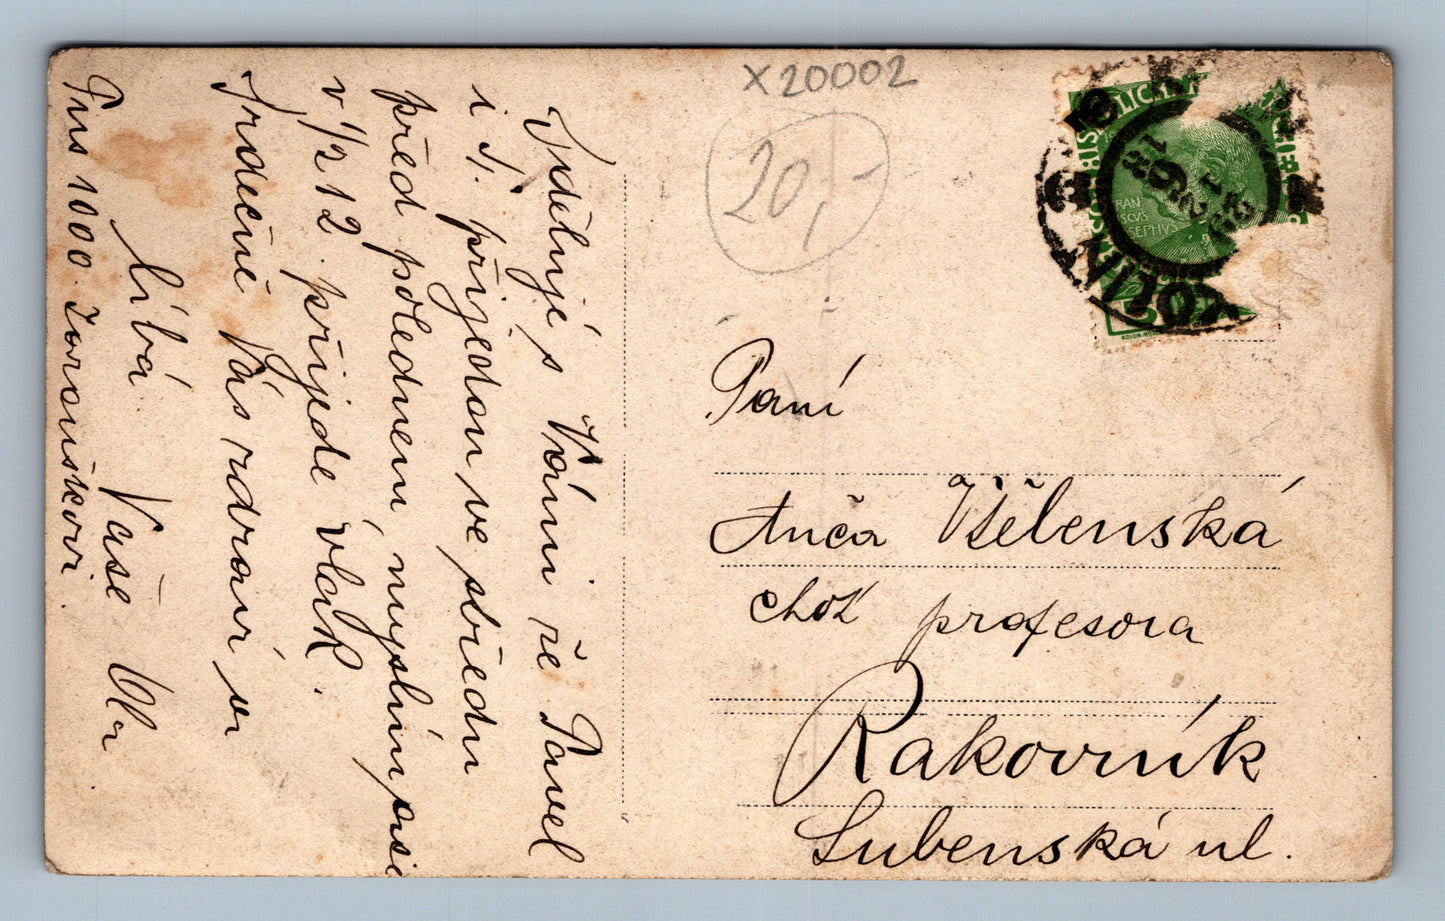 X20002
20,-
Sděluji s Vámi že Pavel
i S. přijedou ve středu
před polednem, myslím asi
v 1/2 12. přijede vlak.
Srdečně Vás zdraví a
líbá Vaše
Pus 1000
Paní
Anča Všělenská
choť profesora
Rakovník
Lubenská ul.
FRAN
CISCUS
IOSEPHVS